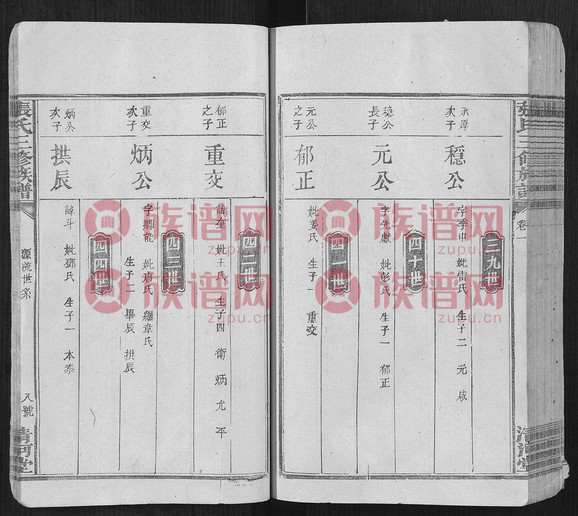 張氏三修族譜
卷一
清河堂
三九世
承𫝊次子
穩公
妣雷氏 生子二 元 成
四十世
穩公長子
元公
字先獻 妣彭氏 生子一 郁正
四一世
元公之子
郁正
妣姜氏 生子一 重交
四二世
郁正之子
重交
妣王氏 生子四 衛 炳 允 平
四三世
重交次子
炳公
妣唐氏 繼章氏
生子二 畢辰 拱辰
四四世
炳公次子
拱辰
諱斗 妣鄧氏 生子一 本泰
張氏三修族譜
源流世系
八號
清河堂
族谱网
zupu.cn
族谱网
zupu.cn